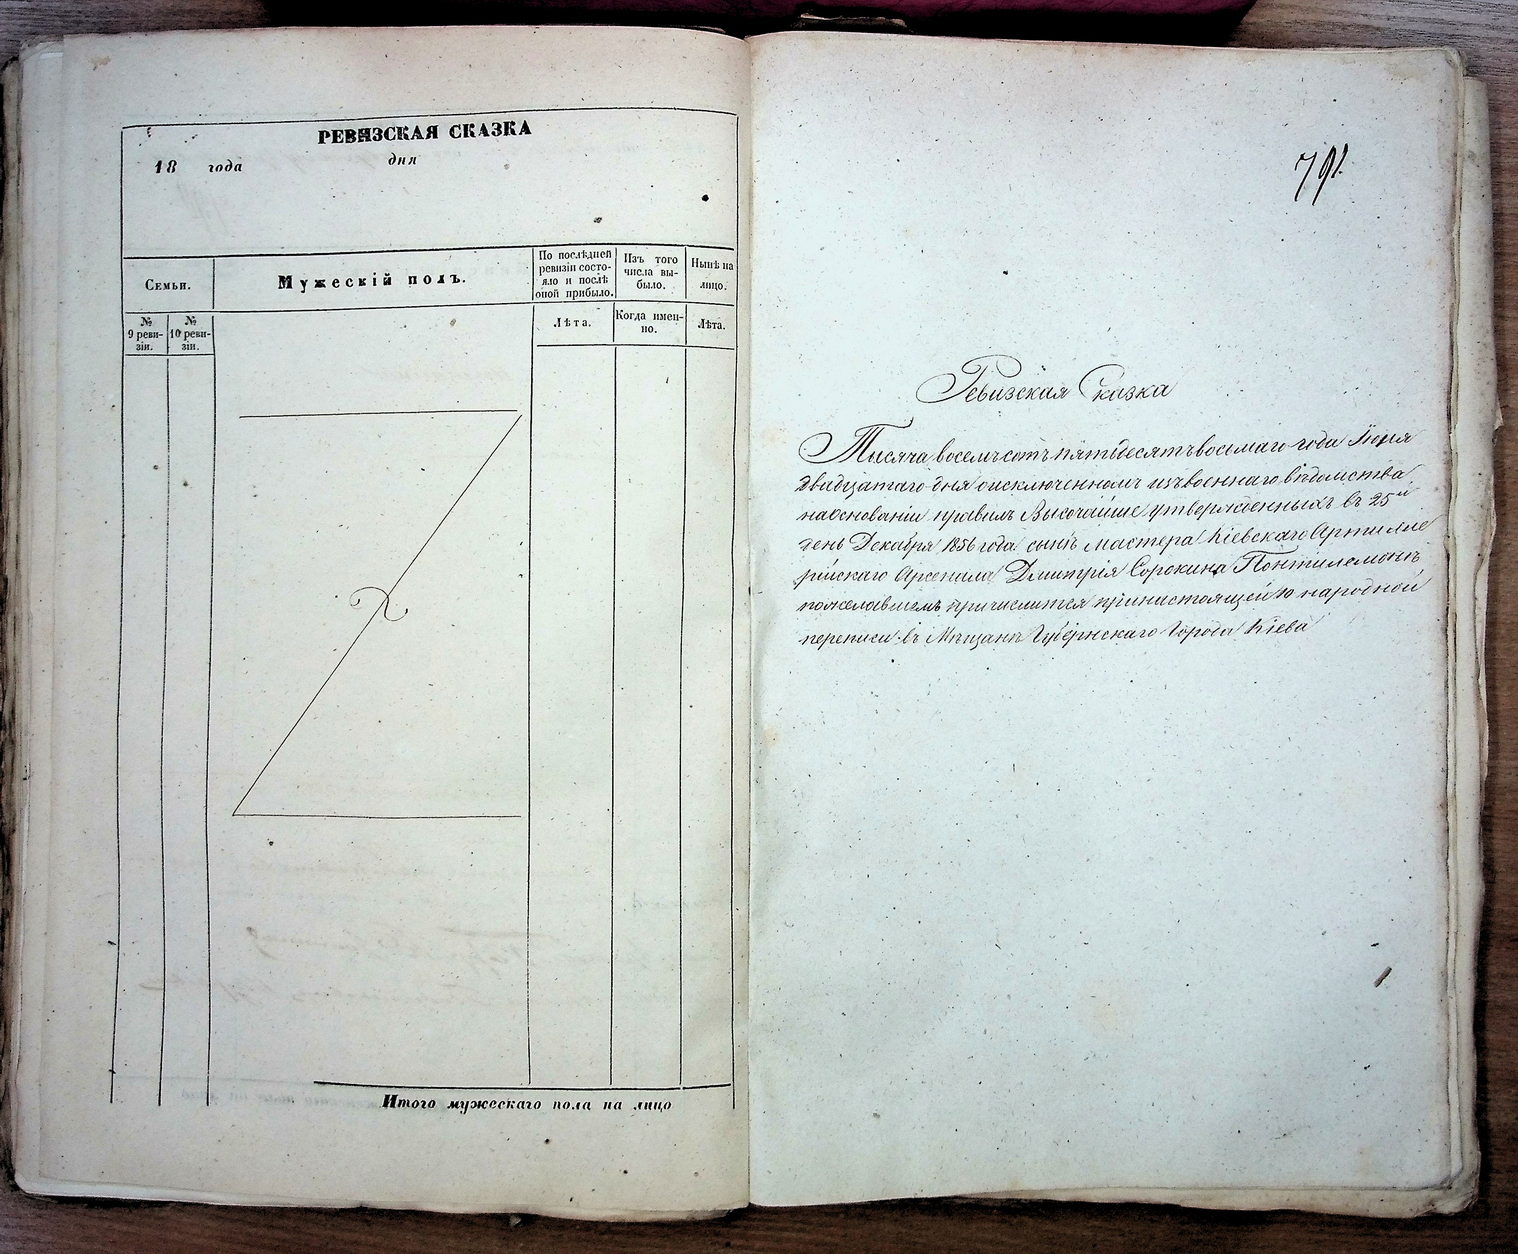 РЕВИЗСКАЯ СКАЗКА
18 года дня
Семьи.
Мужескій полъ.
По послѣдней
ревизіи состо-
яло и послѣ
оной прибыло.
Изъ того
числа вы-
было.
Нынѣ на
лицо.
№
9 реви-
зіи.
№
10 реви-
зіи.
Лѣта.
Когда имен-
но.
Лѣта.
Итого мужескаго пола на лицо
791.
Ревизская Сказка
Тысяча восемьсотъ пятдесятъ восьмаго года Іюня
двадцатаго дня о исключенномъ изъ военнаго вѣдомства
на основаніи правилъ Высочайше утвержденныхъ въ 25й
день Декабря 1856 года сынѣ мастера Кіевскаго Артилле
рійскаго Арсенала Дмитрія Сорокина Понтилемонъ
пожелавшемъ причислится принастоящей 10 народной
переписи въ Мѣщане Губернскаго Города Кіева